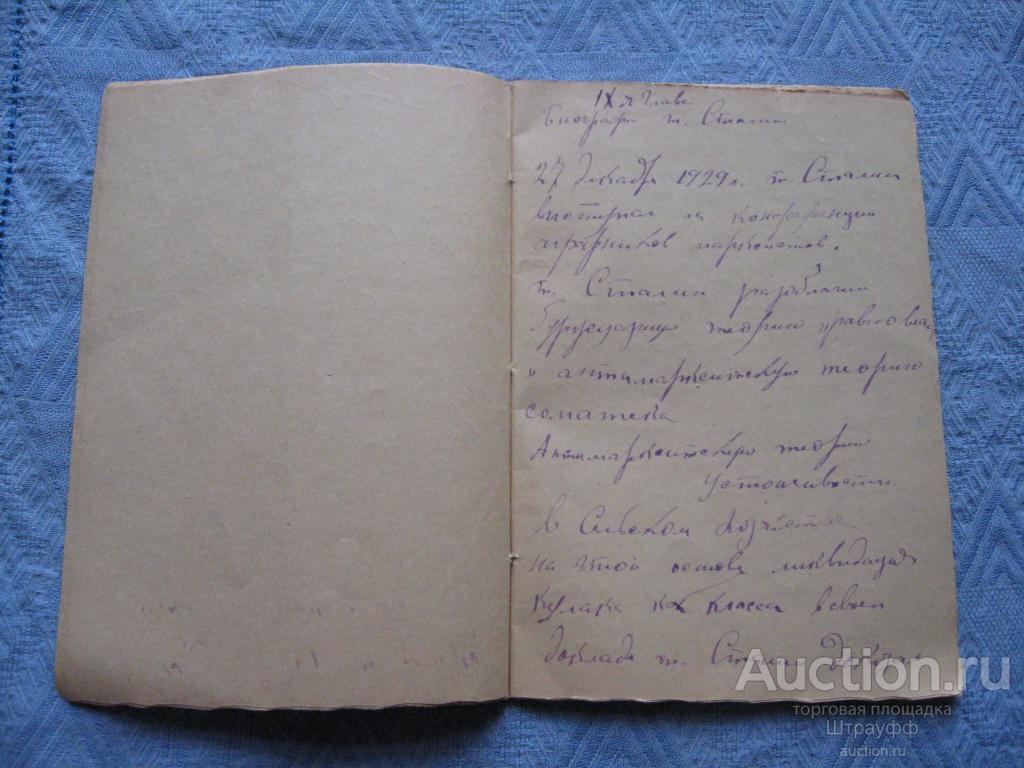 IX я Глава
Биографи т. Сталин
27 декабря 1929 г. т. Сталин
выступил на конференции
аграрников марксистов.
т. Сталин разоблачил
Буржуазную теорию равновесия
и антимарксистскую теорию
самотека
Антимарксистскую теорию
устойчивости
в Сельском хозяйстве
на этой основе ликвидация
кулака как класса в своем
докладе т. Сталин
Auction.ru
торговая площадка
Штрауфф
auction.ru